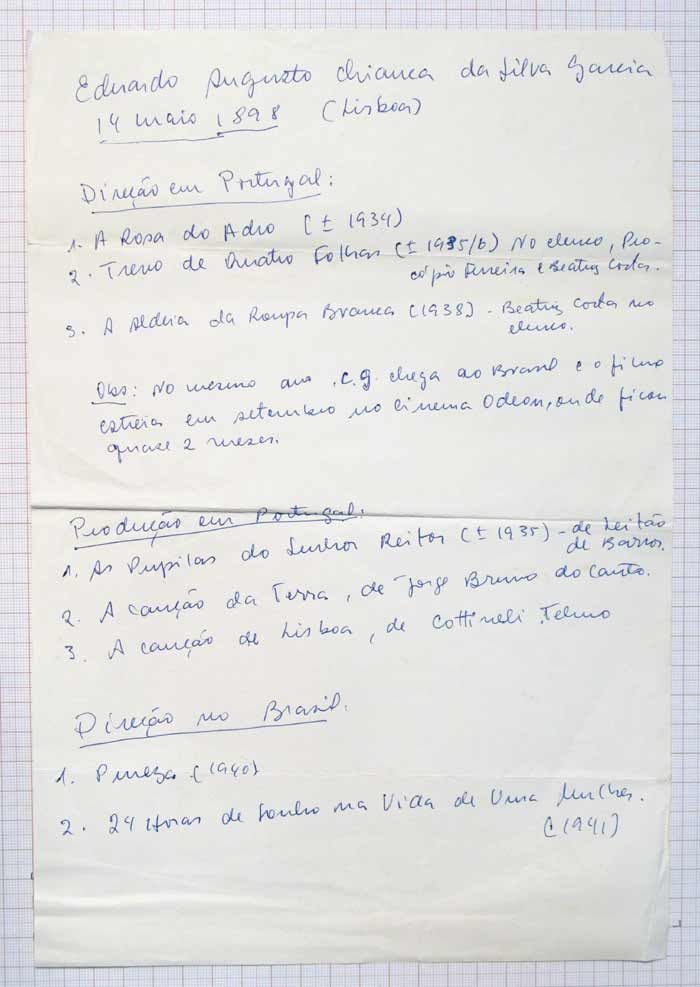 Eduardo Augusto Chianca da Silva Garcia
14 maio 1898 (Lisboa)
Direção em Portugal:
1. A Rosa do Adro (± 1934)
2. Trevo de Quatro Folhas (± 1935/6) No elenco, Pro-
cópio Ferreira e Beatriz Costa.
3. A Aldeia da Roupa Branca (1938) - Beatriz Costa no
elenco.
Obs: No mesmo ano, C.G. chega ao Brasil e o filme
estreia em setembro no cinema Odeon, onde ficou
quase 2 mezes.
Produção em Portugal:
1. As Pupilas do Senhor Reitor (± 1935) - de Leitão
de Barros.
2. A canção da Terra, de Jorge Brum do Canto.
3. A canção de Lisboa, de Cottineli Telmo
Direção no Brasil:
1. Pureza (1940)
2. 24 Horas de Sonho na Vida de Uma Mulher.
(1941)